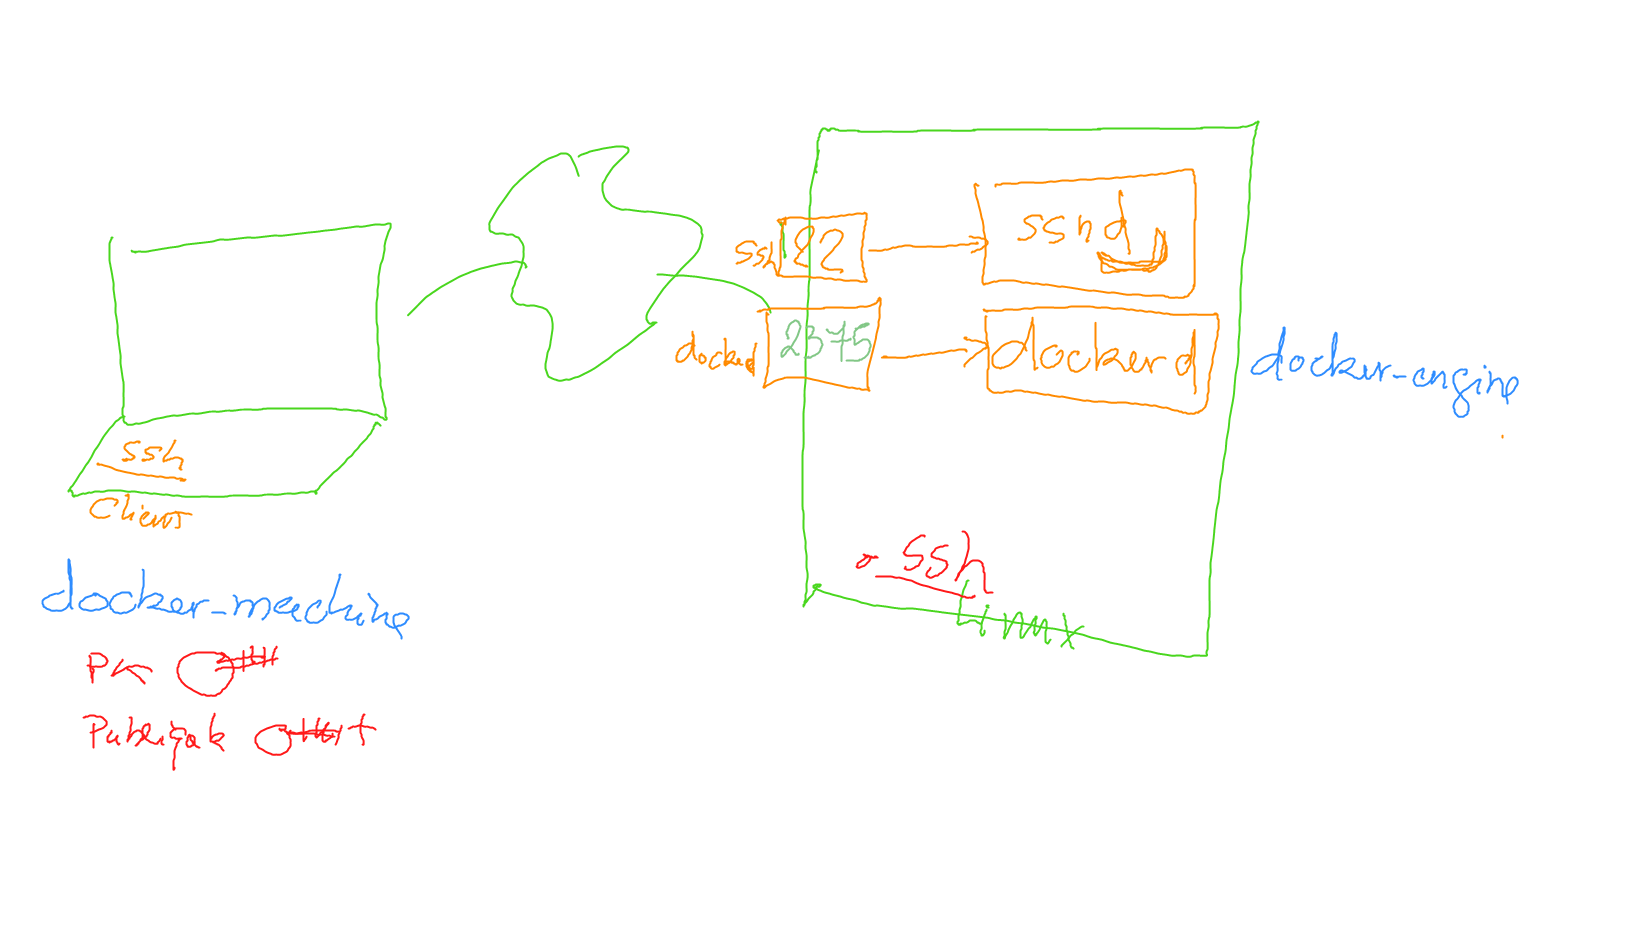 ssh
Client
docker-machine
PK
ssh 22
sshd
docked 2375
dockerd
docker-engine
ssh
Linux